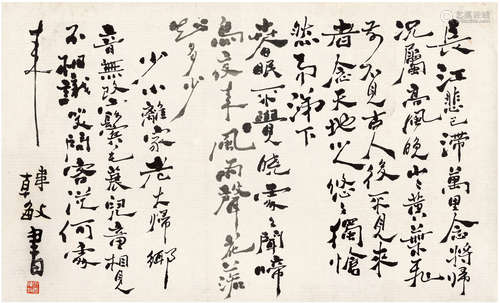 長江悲已滯萬里念將歸
況屬高風晚山山黃葉飛
前不見古人後不見來
者念天地之悠悠獨愴
然而涕下
春眠不覺曉處處聞啼
鳥夜來風雨聲花落
知多少
少小離家老大歸鄉
音無改鬢毛衰兒童相見
不相識笑問客從何處
來
韓敏書